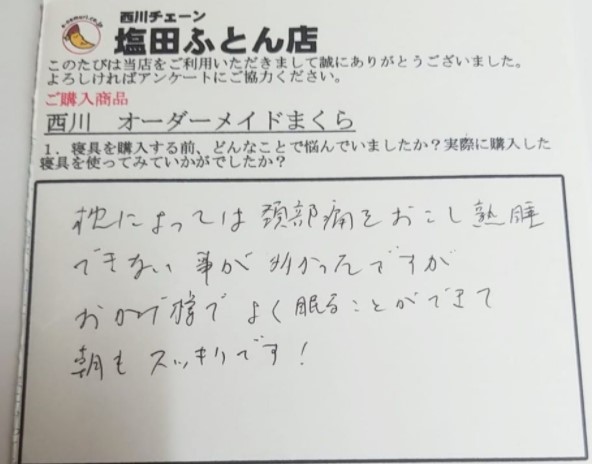 西川チェーン
塩田ふとん店
このたびは当店をご利用いただきまして誠にありがとうございました。
よろしければアンケートにご協力ください。
ご購入商品
西川 オーダーメイドまくら
1．寝具を購入する前、どんなことで悩んでいましたか？実際に購入した
寝具を使ってみていかがでしたか？
枕によっては頚部痛をおこし熟睡
できない事が多かったんですが
おかげ様でよく眠ることができて
朝もスッキリです！